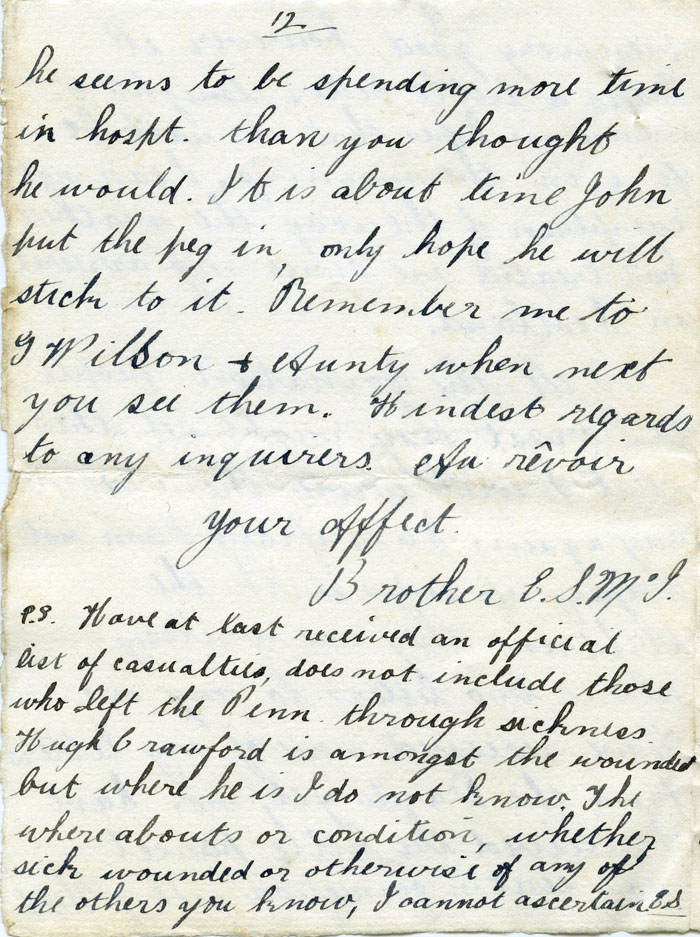 12
he seems to be spending more time
in hospt. than you thought
he would. It is about time John
put the peg in, only hope he will
stick to it. Remember me to
J Wilson + Aunty when next
you see them. Kindest regards
to any inquirers. Au rêvoir
your affect.
Brother E. S. McI.
P.S. Have at last received an official
list of casualties, does not include those
who left the Penn. through sickness
Hugh Crawford is amongst the wounded
but where he is I do not know. The
where abouts or condition, whether
sick wounded or otherwise of any of
the others you know, I cannot ascertain E.S.